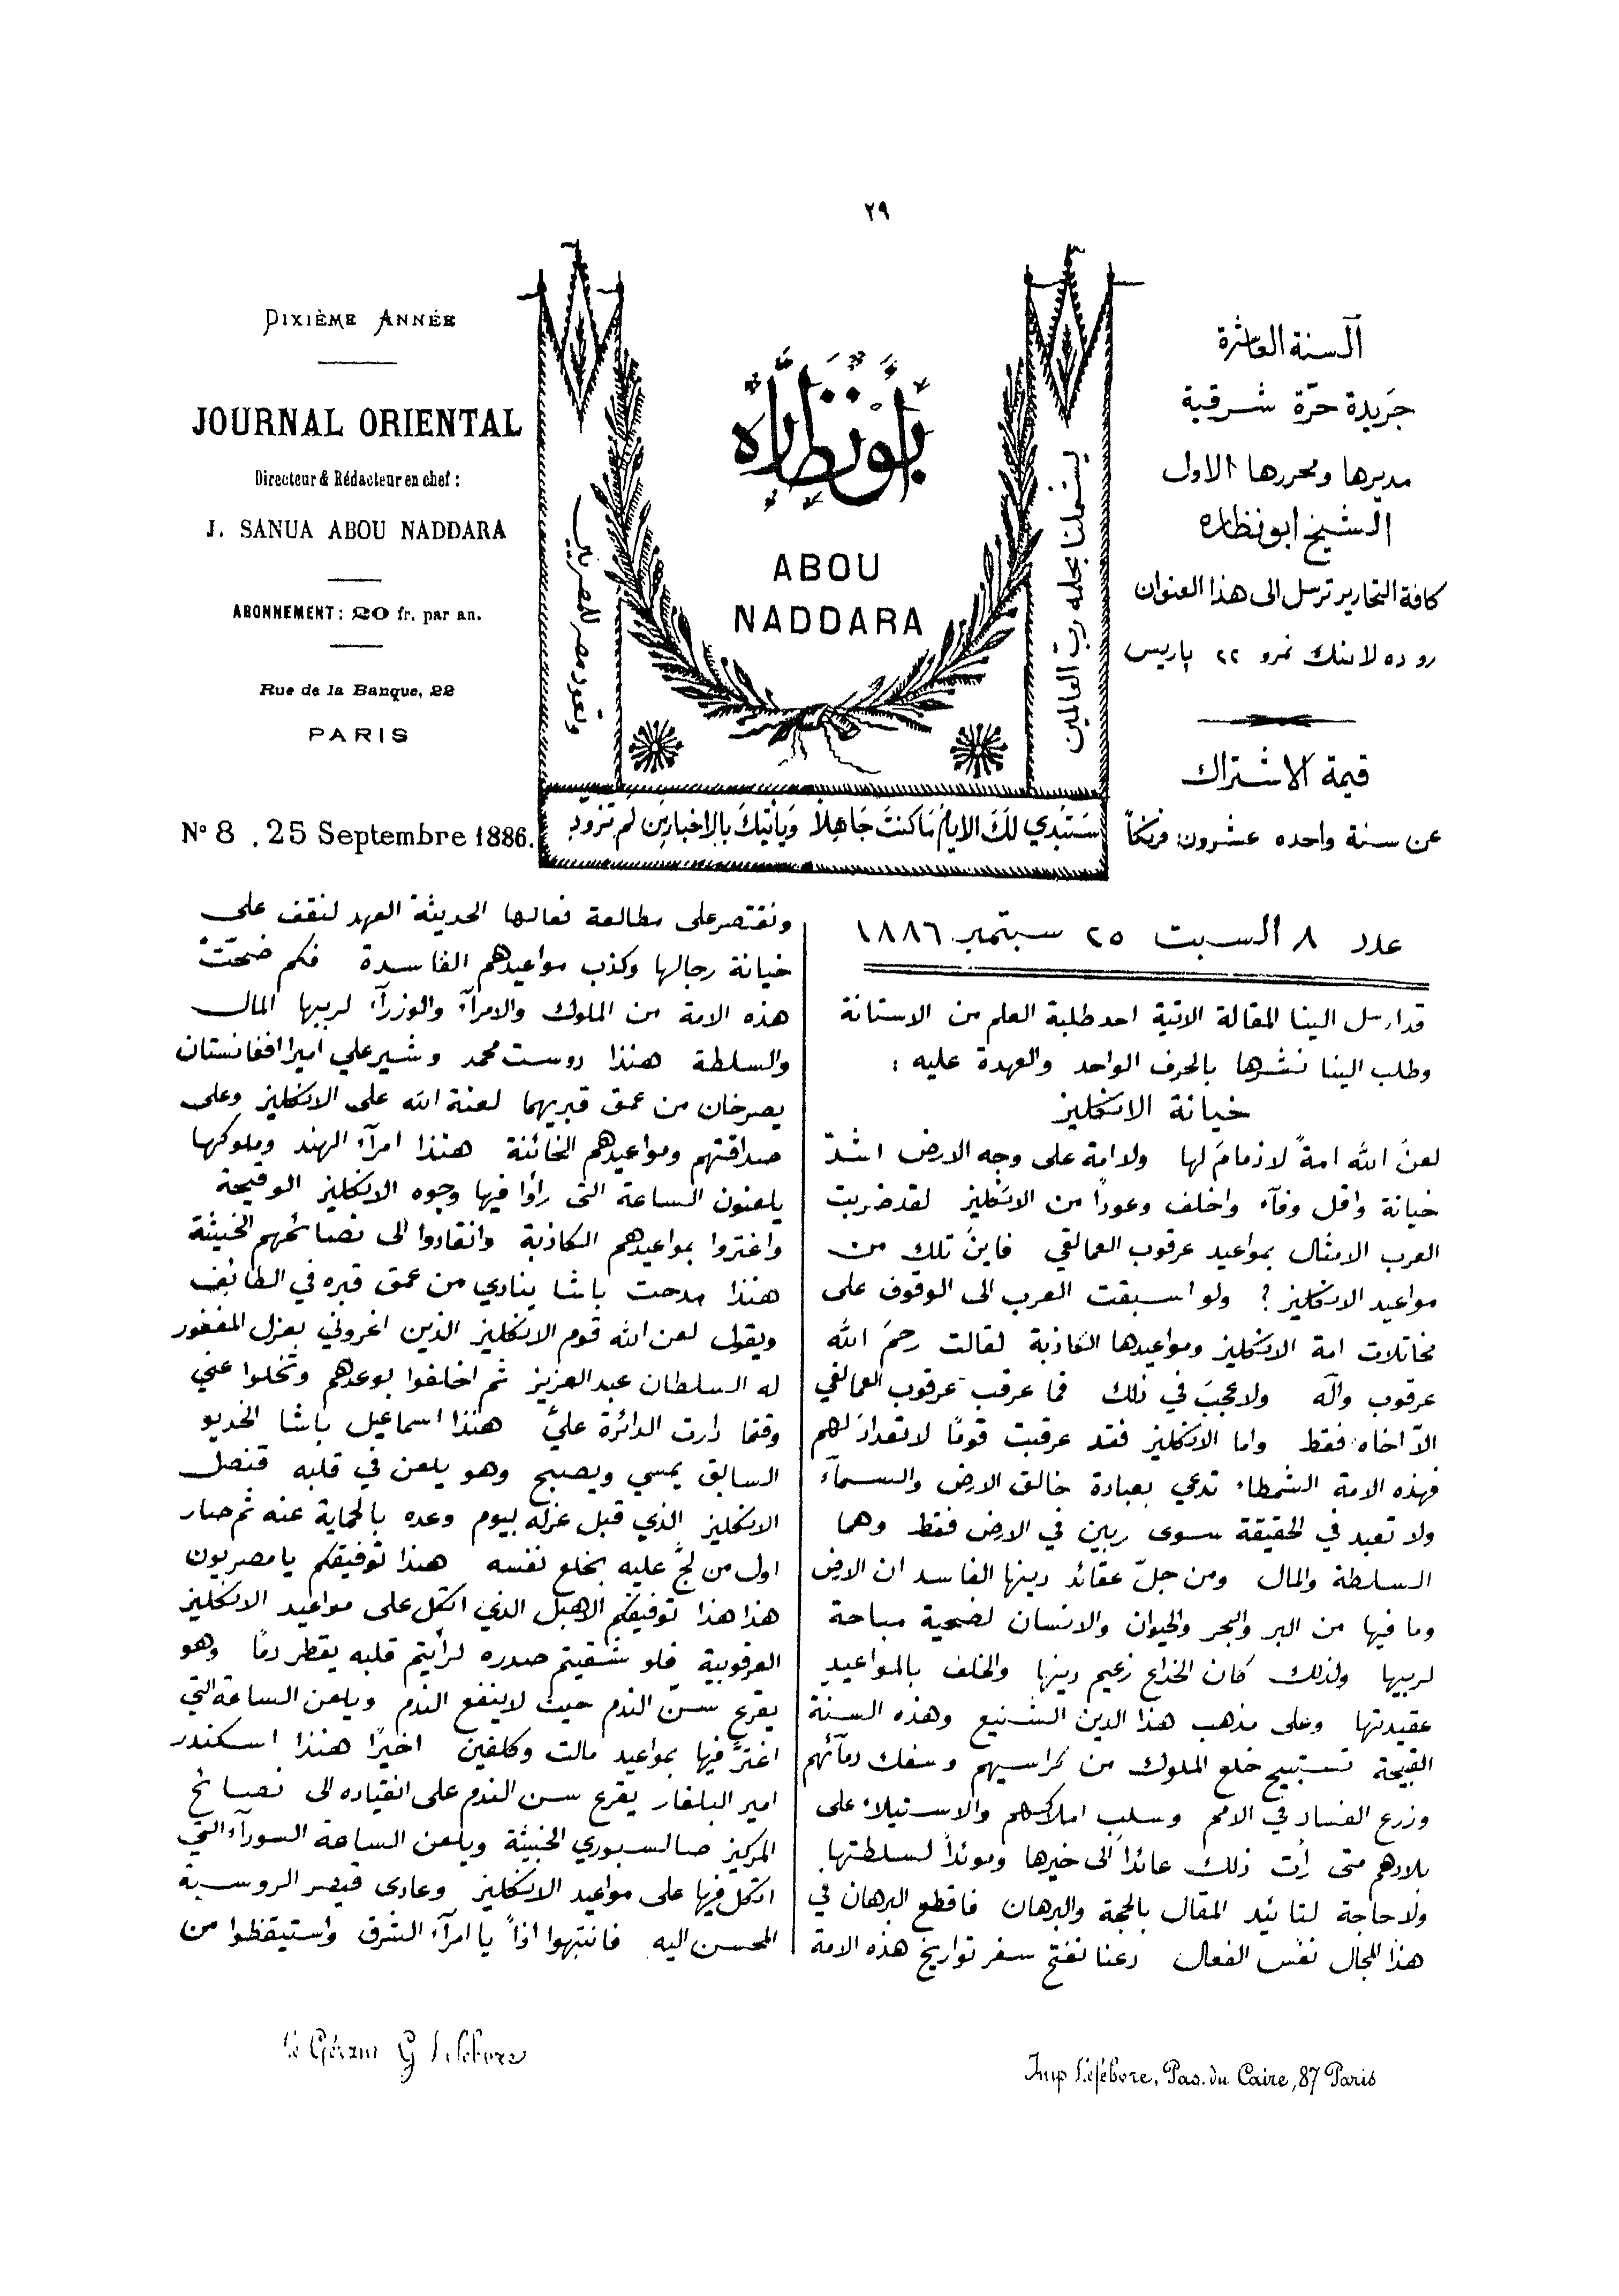 ٢٩
DIXIÈME ANNÉE
JOURNAL ORIENTAL
Directeur & Rédacteur en chef :
J. SANUA ABOU NADDARA
ABONNEMENT : 20 fr. par an.
Rue de la Banque, 22
PARIS
Nº 8 . 25 Septembre 1886.
ابو نظاره
ABOU
NADDARA
يشملنا بحلمه رب العالمين
وتعود مصر للمصريين
سَتبْدي لكَ الايامُ مَا كنتَ جَاهِلاً وَيأتيكَ بالاخبارِ من لم تزودِ
السنة العاشرة
جَريدة حرّة شرقية
مديرها ومحررها الاول
الشيخ ابو نظاره
كافة التحارير ترسل الى هذا العنوان
رو ده لا بنك نمرو ٢٢ پاريس
قيمة الاشتراك
عن سنة واحده عشرون فرنكاً
عدد ٨ السبت ٢٥ سبتمبر ١٨٨٦
قد ارسل الينا المقالة الاتية احد طلبة العلم من الاستانة
وطلب الينا نشرها بالحرف الواحد والعهدة عليه :
خيانة الانكليز
لعنَ الله امةً لا ذمامَ لها ولا امة على وجه الارض اشدّ
خيانة واقل وفآء واخلف وعوداً من الانكليز لقد ضربت
العرب الامثال بمواعيد عرقوب العمالقي فاين تلك من
مواعيد الانكليز ؟ ولو اسبقت العرب الى الوقوف على
مخاتلات امة الانكليز ومواعيدها الكاذبة لقالت رحمَ الله
عرقوب وآله ولا عجبَ في ذلك فما عرقب عرقوب العمالقي
الاّ اخاه فقط واما الانكليز فقد عرقبت قومًا لا تعدادَ لهم
فهذه الامة الشمطاء تدعي بعبادة خالق الارض والسمآء
ولا تعبد في الحقيقة سوى ربين في الارض فقط وهما
السلطة والمال ومن جلّ عقائد دينها الفاسد ان الارض
وما فيها من البر والبحر والحيوان والانسان لضحية مباحة
لربيها ولذلك كان الخداع زعيم دينها والخلف بالمواعيد
عقيدتها وعلى مذهب هذا الدين الشنيع وهذه السنة
القبيحة تستبيح خلع الملوك من كراسيهم وسفك دمآئهم
وزرع الفساد في الامم وسلب املاكهم والاستيلاء على
بلادهم متى رأت ذلك عائداً الى خيرها وموئداً لسلطتها.
ولا حاجة لتائيد المقال بالحجة والبرهان فاقطع البرهان في
هذا المجال نفس الفعال دعنا نفتح سفر تواريخ هذه الامة
ونقتصر على مطالعة فعالها الحديثة العهد لنقف على
خيانة رجالها وكذب مواعيدهم الفاسدة فكم ضحّتْ
هذه الامة من الملوك والامرآء والوزرآء لربيها المال
والسلطة هنذا دوست محمد وشير علي اميرا افغانستان
يصرخان من عمق قبريهما لعنة الله على الانكليز وعلى
صداقتهم ومواعيدهم الخائنة هنذا امرآء الهند وملوكها
يلعنون الساعة التى رأوا فيها وجوه الانكليز الوقيحة
واغتروا بمواعيدهم الكاذبة وانقادوا الى نصائحهم الخبيثة
هنذا مدحت باشا ينادي من عمق قبره في الطائف
ويقول لعن الله قوم الانكليز الذين اغروني بعزل المغفور
له السلطان عبد العزيز ثم اخلفوا بوعدهم وتخلوا عني
وقتما دارت الدائرة عليَّ هنذا اسماعيل باشا الخديو
السابق يمسي ويصبح وهو يلعن في قلبه قنصل
الانكليز الذي قبل عزله بيوم وعده بالحماية عنه ثم صار
اول من لجّ عليه بخلع نفسه هنذا توفيقكم يا مصريون
هذا هذا توفيقكم الاهبل الذي اتكل على مواعيد الانكليز
العرقوبية فلو شقيتم صدره لرأيتم قلبه يقطر دمًا وهو
يقرع سنّ الندم حيث لا ينفع الندم ويلعن الساعة التي
اغترّ فيها بمواعيد مالت وكلفين اخيرًا هنذا اسكندر
امير البلغار يقرع سن الندم على انقياده الى نصائح
المركيز صالسبوري الخبيثة ويلعن الساعة السورآء التي
اتكل فيها على مواعيد الانكليز وعادى قيصر الروسية
المحسن اليه فانتبهوا اذاً يا امرآء الشرق واستيقظوا من
le Gérant G Lefebvre
Imp Lefebvre, Pas. du Caire, 87 Paris